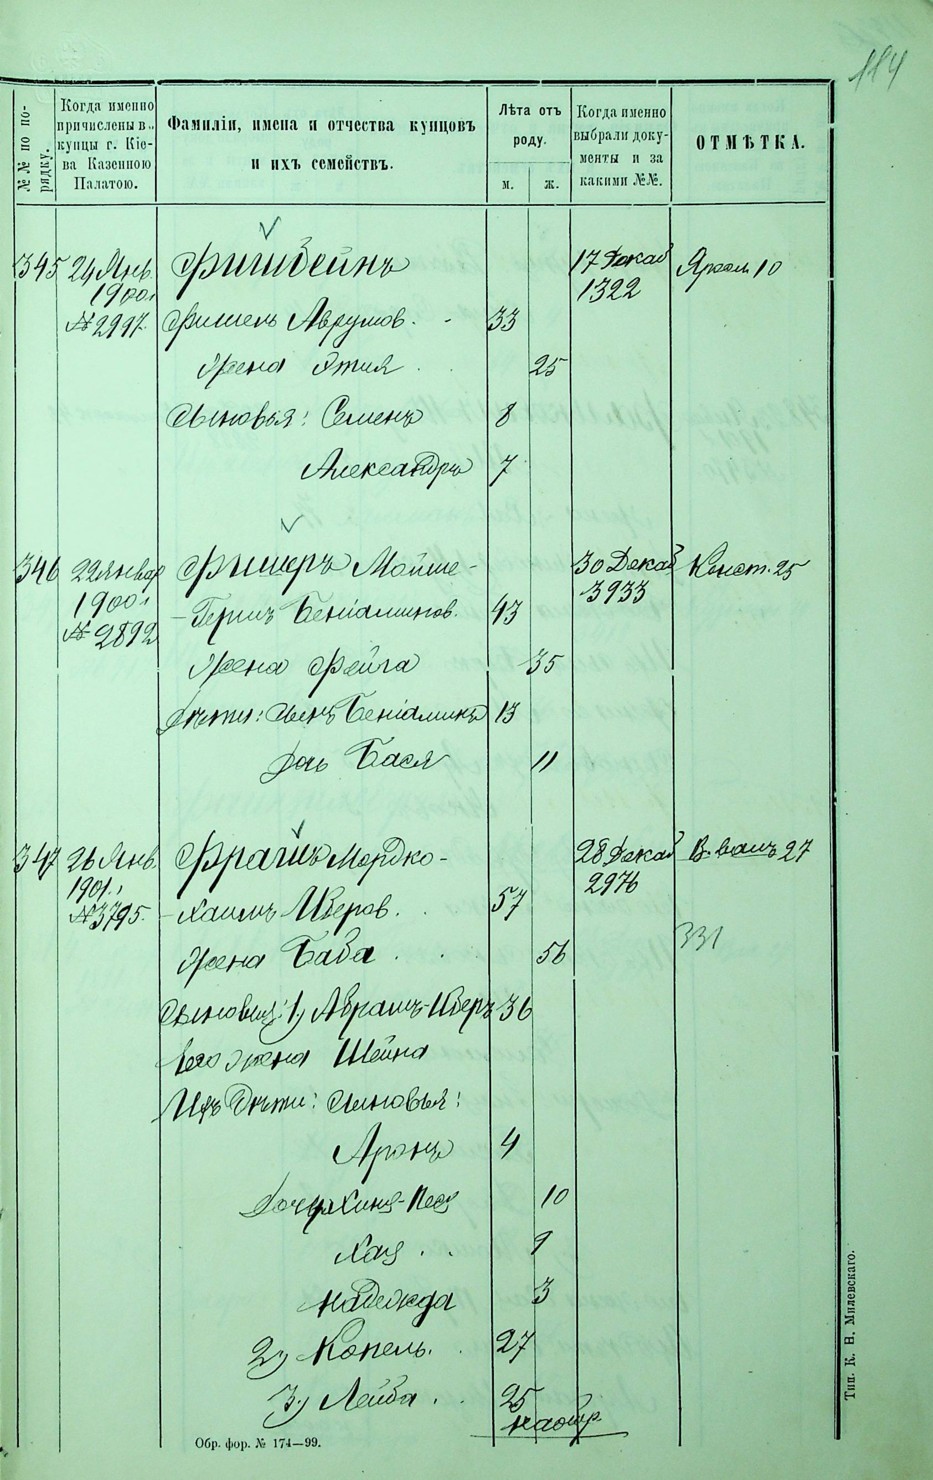 184
№№ по по-
рядку.
Когда именно
причислены в
купцы г. Кіе-
ва Казенною
Палатою.
Фамиліи, имена и отчества купцовъ
и ихъ семействъ.
Лѣта отъ
роду.
м. ж.
Когда именно
выбрали доку-
менты и за
какими №№.
ОТМѢТКА.
345 24 Янв. Фишбейнъ 17 Декаб Яросл. 10
1900 1322
№ 2997. Фишель Аврумов. 33
Жена Этия 25
Сыновья: Семенъ 8
Александръ 7
346 22 Январ Фишеръ Мойше- 30 Декаб Конст. 25
1900 3933
№ 2892 -Гершъ Беніаминов. 43
Жена Фейга 35
Дѣти: Сынъ Беніаминъ 13
Дочь Бася 11
347 26 Янв. Мордко- 28 Декаб В. Вал 27
1901. 2976
№ 3795. -Хаимъ Иберов. 57
331
Жена Баба 56
Сыновья: 1) Абрамъ-Иберъ 36
Его жена Шейна
Ихъ дѣти: Сыновья:
Аронъ 4
10
9
Надежда 3
2) Копель. 27
3) Лейба 25
на обор.
Обр. фор. № 174—99.
Тип. К. Н. Милевскаго.